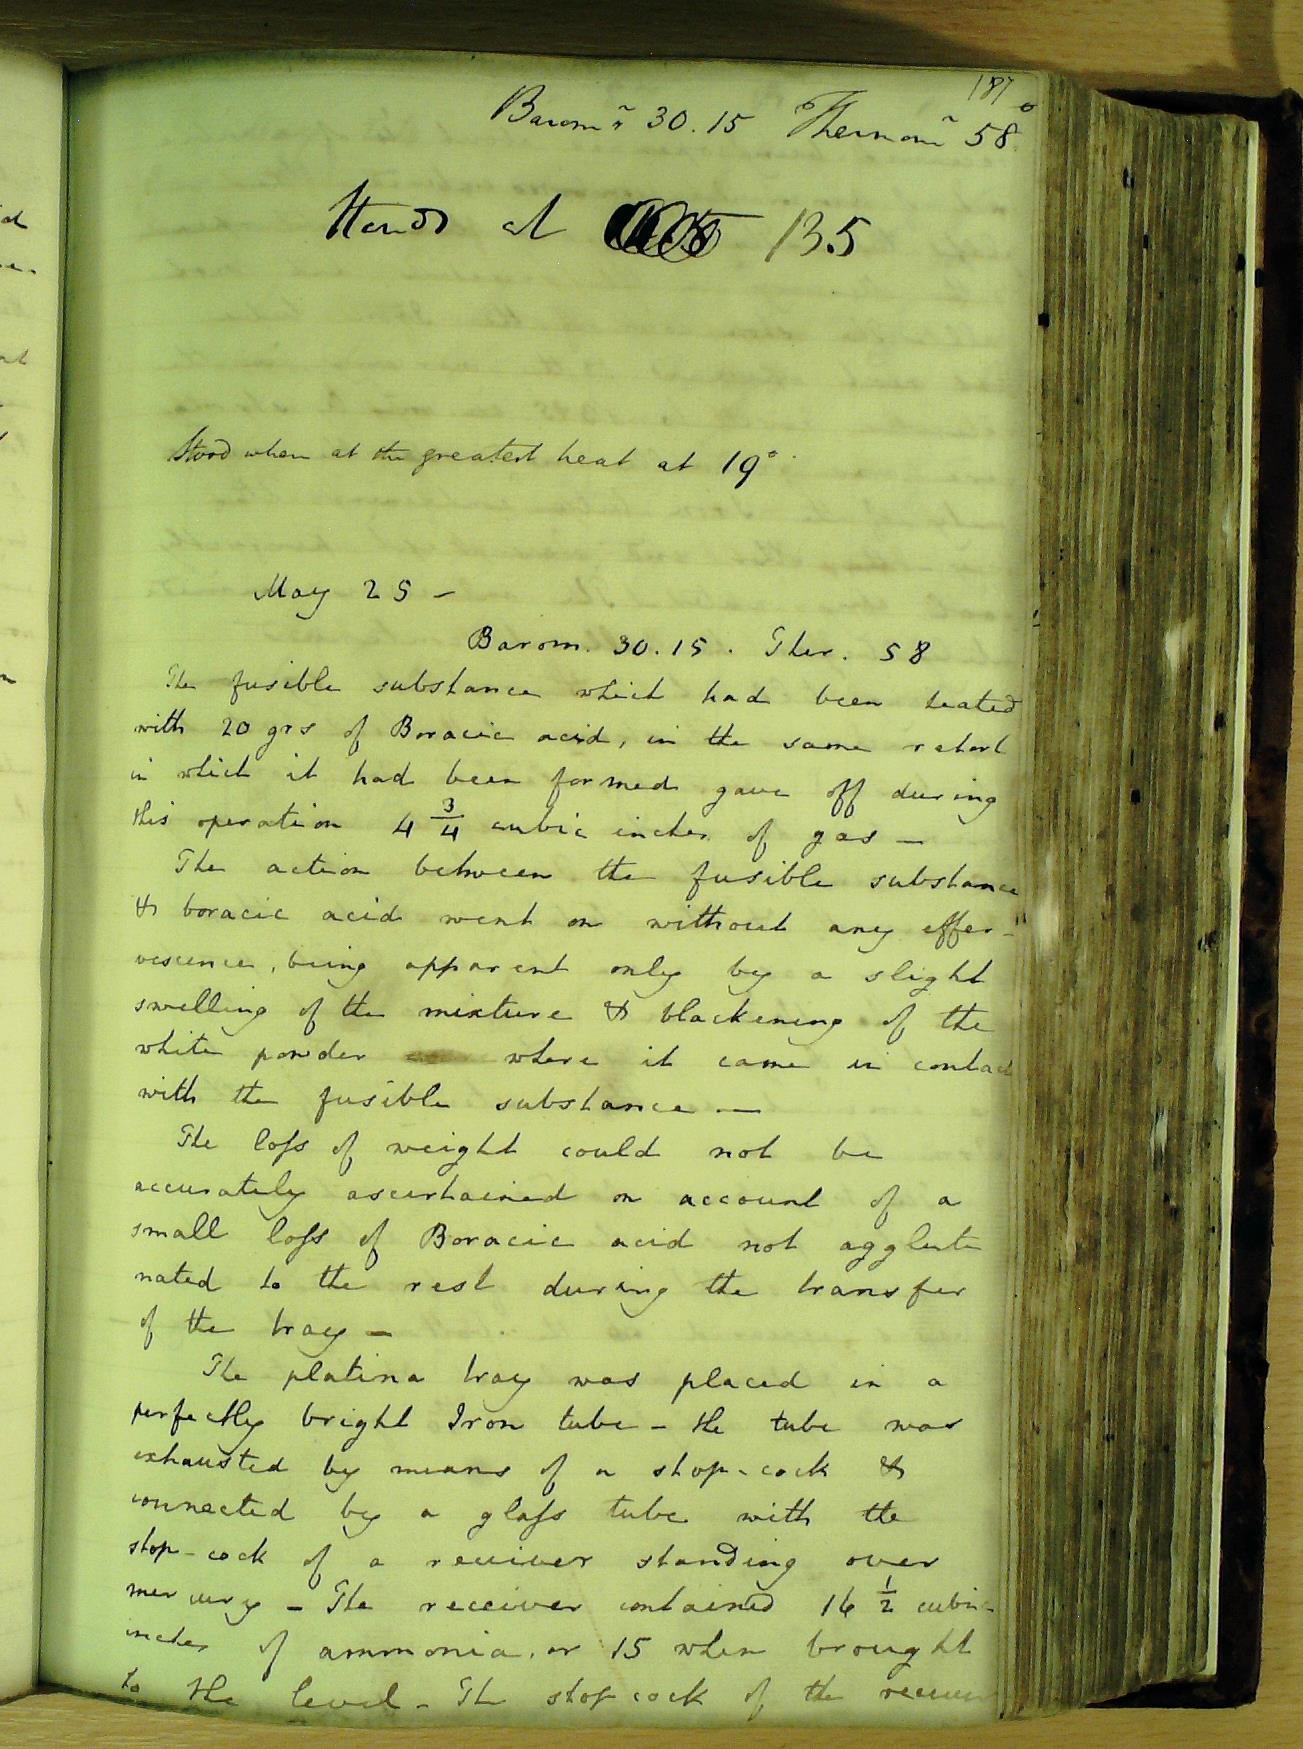 187
Baromr 30.15 Thermomr 58°
Stands at 13.5
Stood when at the greatest heat at 19°
May 25 –
Barom. 30.15. Ther. 58
The fusible substance which had been heated
with 20 grs of Boracic acid, in the same retort
in which it had been formed gave off during
this operation 4 3/4 cubic inches of gas –
The action between the fusible substance
& boracic acid went on without any effer-
vescence, being apparent only by a slight
swelling of the mixture & blackening of the
white powder where it came in contact
with the fusible substance –
The loſs of weight could not be
accurately ascertained on account of a
small loſs of Boracic acid not agglute
nated to the rest during the transfer
of the tray –
The platina tray was placed in a
perfectly bright Iron tube – the tube was
exhausted by means of a stop-cock &
connected by a glaſs tube with the
stop-cock of a receiver standing over
mercury – The receiver contained 16 1/2 cubic
inches of ammonia, or 15 when brought
to the level – Th stop cock of the receiver